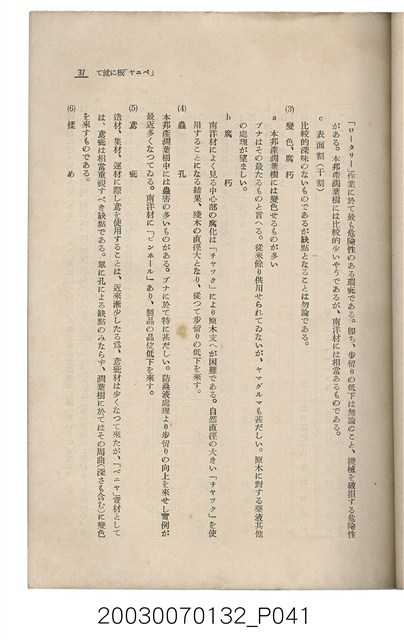 「ロータリー」作業に於て最も危險性のある瑕疵である。即ち、歩留りの低下は無論のこと、機械を破損する危險性
がある。本邦産濶葉樹には比較的少いやうであるが、南洋材には相當あるものである。
c 表面割(干割)
比較的深味のないものであるが缺點となることは勿論である。
(3) 變色、腐朽
a 本邦産濶葉樹には變色せるものが多い
ブナはその最たるものと言へる。從來餘り供用せられてゐないが、ヤマグルマも甚だしい。原木に對する藥液其他
の處理が望ましい。
b 腐朽
南洋材によく見る中心部の腐化は「チヤツク」により原木支へが困難である。自然直徑の大きい「チヤツク」を使
用することになる結果、殘木の直徑大となり、從つて歩留りの低下を來す。
(4) 蟲孔
本邦産濶葉樹中には蟲害の多いものがある。ブナに於て特に甚だしい。防蟲液處理より歩留りの向上を來せし實例が
最近多くなつてゐる。南洋材に「ピンホール」あり、製品の品位低下を來す。
(5) 鳶疵
造材、集材、運材に際し鳶を使用することは、近來漸少したる爲、鳶疵材は少くなつて來たが、「ベニヤ」資材として
は、鳶疵は相當重視すべき缺點である。單に孔による缺點のみならず、濶葉樹に於てはその周曲(深さも含む)に變色
を來すものである。
(6) 揉め
「ベニヤ」板に就て 37
20030070132_P041